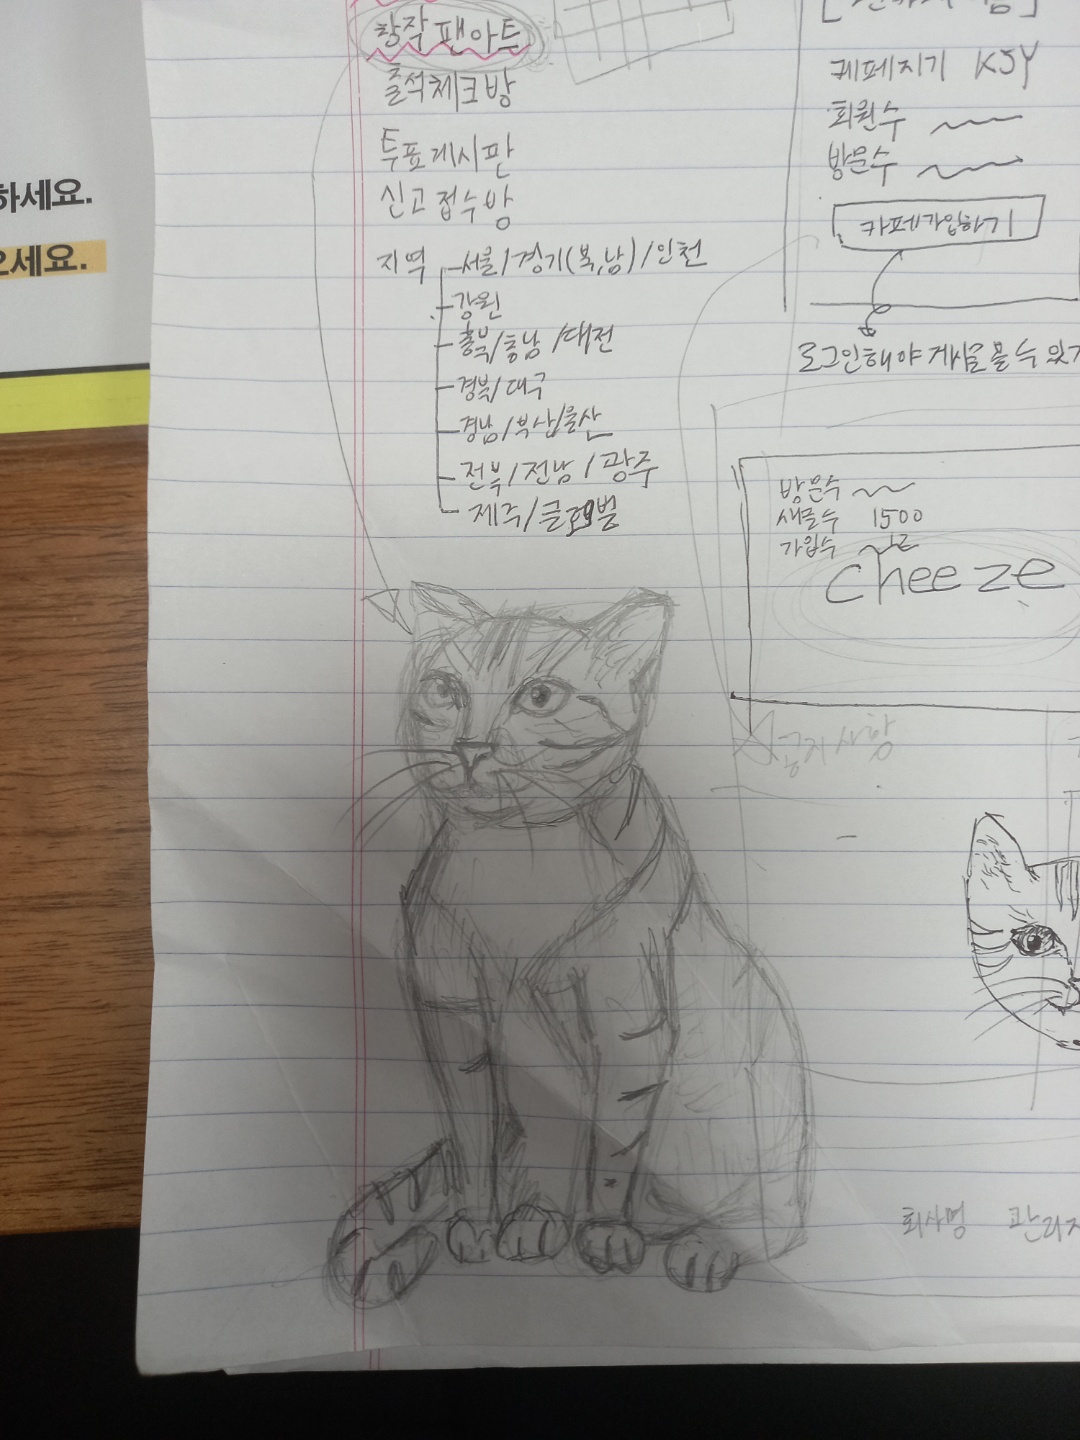 하세요.
오세요.
창작 팬아트
출석체크방
투표게시판
신고접수방
지역 서울/경기(북,남)/인천
강원
충북/충남/대전
경북/대구
경남/부산/울산
전북/전남/광주
제주/글로벌
케페지기 KSY
회원수
방문수
카페가입하기
로그인해야 게시글 볼 수 있
방문수
새글수 1500
가입수
cheeze
공지사항
회사명 관리자